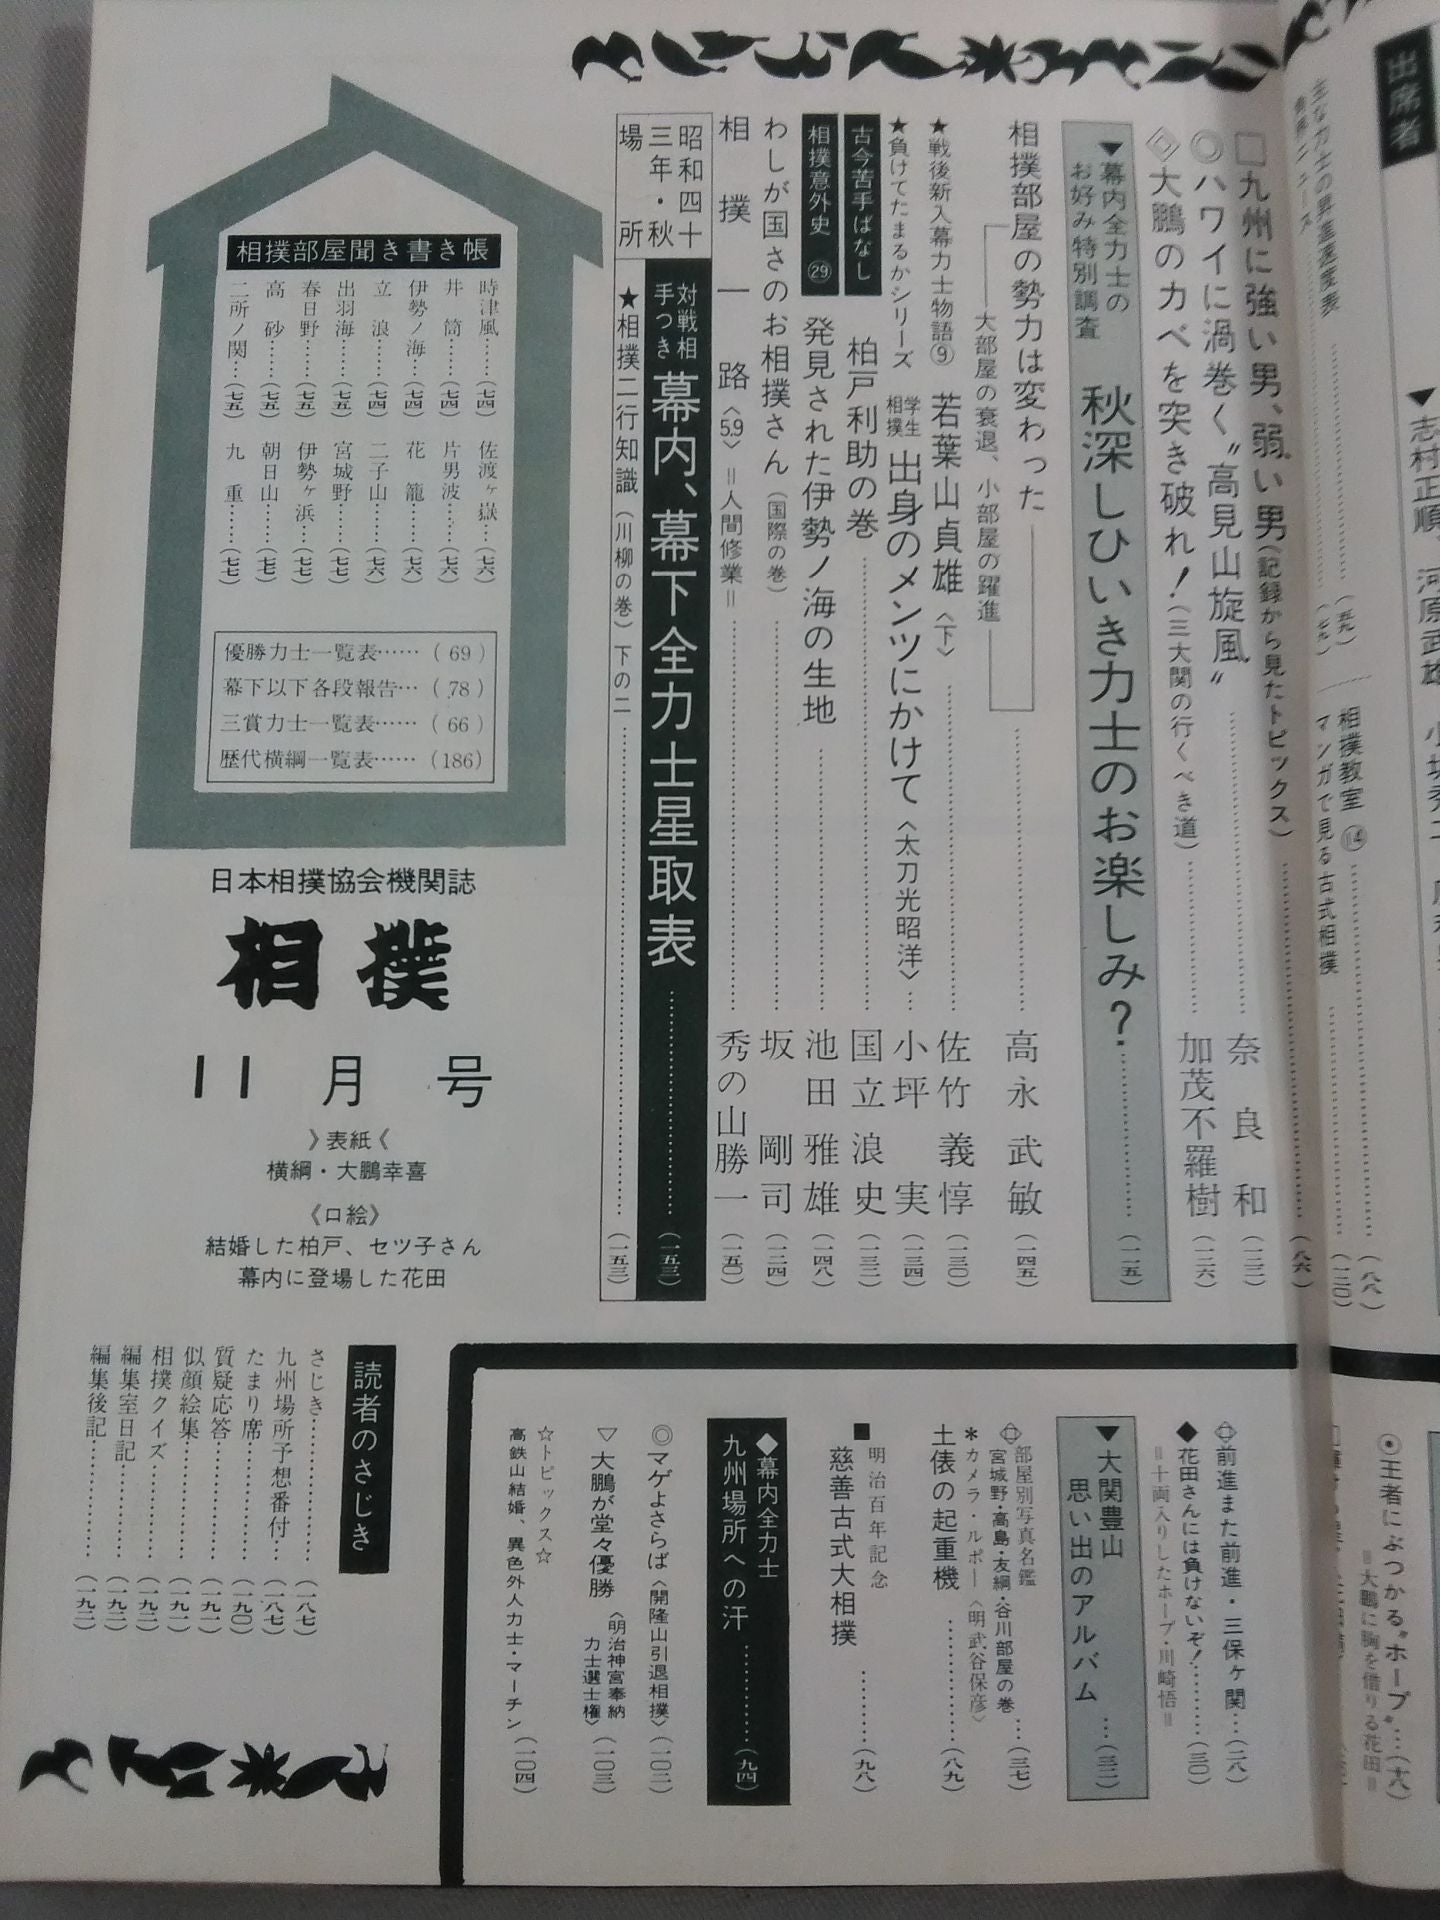 出席者
▼志村正順
□九州に強い男、弱い男(記録から見たトピックス)……(八六)
◎ハワイに渦巻く〝高見山旋風〟……奈良和(一二二)
◇大鵬のカベを突き破れ!(三大関の行くべき道)……加茂不羅樹(一二六)
▼幕内全力士のお好み特別調査 秋深しひいき力士のお楽しみ?……(一一五)
相撲部屋の勢力は変わった……高永武敏(一四五)
大部屋の衰退、小部屋の躍進
★戦後新入幕力士物語⑨ 若葉山貞雄〈下〉……佐竹義惇(一三〇)
★負けてたまるかシリーズ 学生相撲出身のメンツにかけて〈太刀光昭洋〉…小坪実(一三四)
古今苦手ばなし 柏戸利助の巻……国立浪史(一三二)
相撲意外史㉙ 発見された伊勢ノ海の生地……池田雅雄(一四八)
わしが国さのお相撲さん(国際の巻)……坂剛司(一二四)
相撲一路〈59〉=人間修業=……秀の山勝一(一五〇)
昭和四十三年・秋場所
対戦相手つき 幕内、幕下全力士星取表……(一五三)
★相撲二行知識(川柳の巻)下の二……(一五三)
相撲教室⑭
マンガで見る古式相撲……(一二〇)
主な力士の昇進速度表
(八八)
相撲部屋聞き書き帳
時津風……(七四)
井筒……(七四)
伊勢ノ海…(七四)
立浪……(七四)
出羽海……(七五)
春日野……(七五)
高砂……(七五)
二所ノ関…(七五)
佐渡ヶ嶽…(七六)
片男波……(七六)
花籠……(七六)
二子山……(七六)
宮城野……(七七)
伊勢ヶ浜…(七七)
朝日山……(七七)
九重……(七七)
優勝力士一覧表……(69)
幕下以下各段報告…(78)
三賞力士一覧表……(66)
歴代横綱一覧表……(186)
日本相撲協会機関誌
相撲
11月号
》表紙《
横綱・大鵬幸喜
《口絵》
結婚した柏戸、セツ子さん
幕内に登場した花田
◉王者にぶつかる〝ホープ〟…(一八)
=大鵬に胸を借りる花田=
前進また前進・三保ヶ関…(二八)
◆花田さんには負けないぞ!……(三〇)
=十両入りしたホープ・川崎悟=
▼大関豊山思い出のアルバム…(三二)
部屋別写真名鑑
宮城野・高島・友綱・谷川部屋の巻…(三七)
*カメラ・ルポ―〈明武谷保彦〉
土俵の起重機……(八九)
明治百年記念
■慈善古式大相撲……(九八)
◆幕内全力士
九州場所への汗……(九四)
◎マゲよさらば〈開隆山引退相撲〉(一〇二)
▽大鵬が堂々優勝〈明治神宮奉納力士選士権〉(一〇三)
☆トピックス☆
高鉄山結婚、異色外人力士・マーチン(一〇四)
読者のさじき
さじき……(一八七)
九州場所予想番付…(一八七)
たまり席……(一九〇)
質疑応答……(一九一)
似顔絵集……(一九一)
相撲クイズ……(一九二)
編集室日記……(一九二)
編集後記……(一九二)